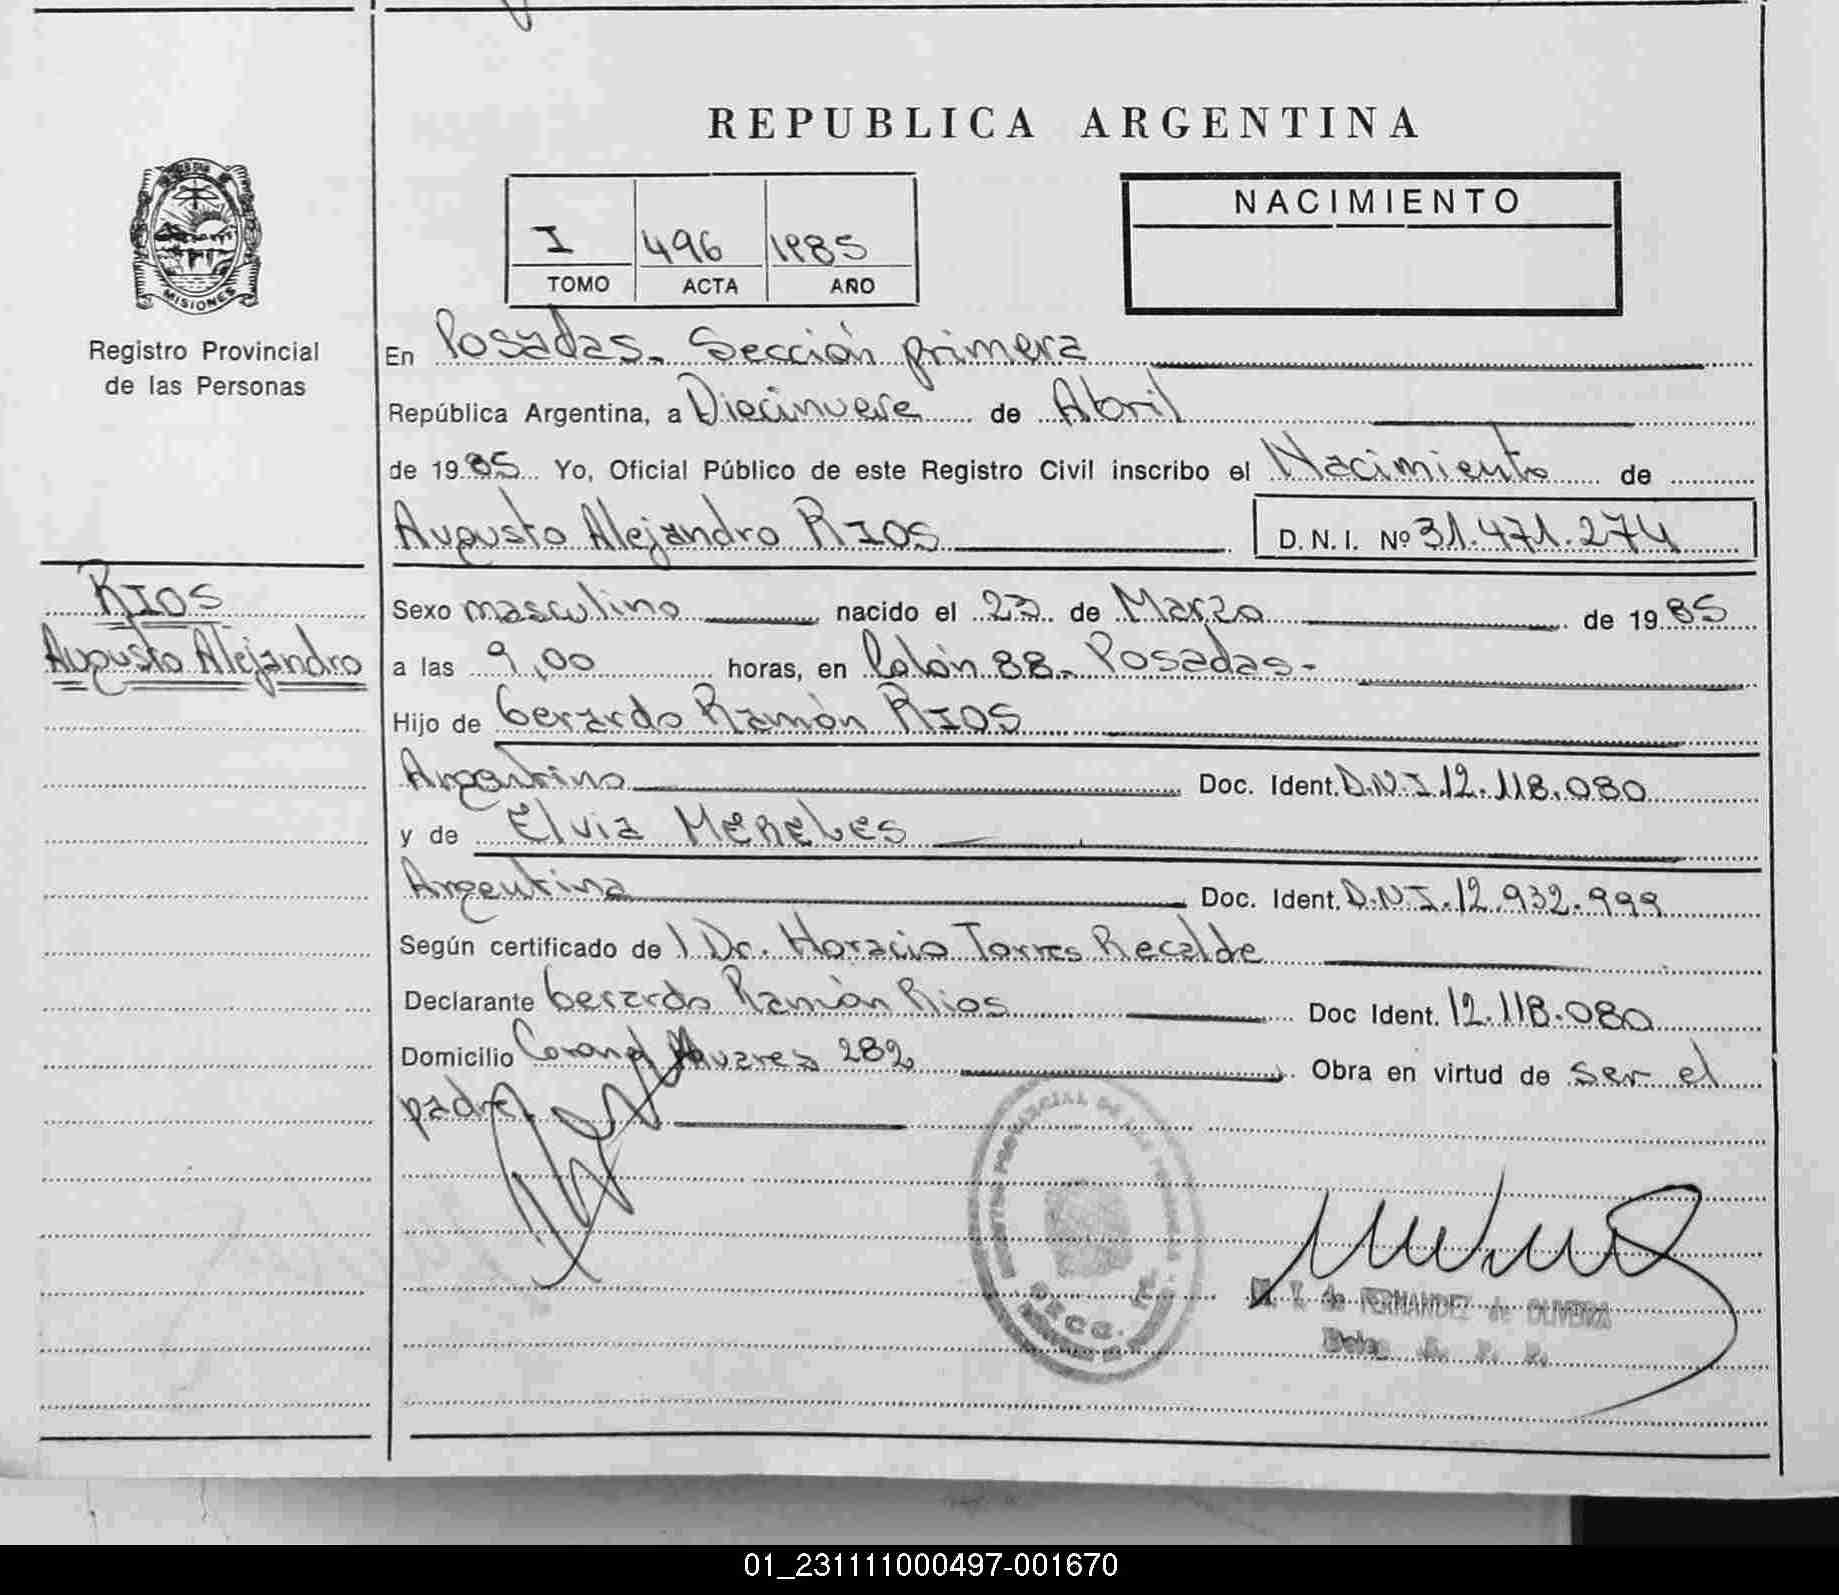 REPUBLICA ARGENTINA
MISIONES
Registro Provincial
de las Personas
I 496 1985
TOMO ACTA AÑO
NACIMIENTO
En Posadas. Sección primera
República Argentina, a Diecinueve de Abril
de 1985 Yo, Oficial Público de este Registro Civil inscribo el Nacimiento de
Augusto Alejandro RIOS D.N.I. Nº 31.471.274
RIOS
Augusto Alejandro
Sexo masculino nacido el 23 de Marzo de 1985
a las 9,00 horas, en Colón 88- Posadas-
Hijo de Gerardo Ramón RIOS
Argentino Doc. Ident. D.N.I. 12.118.080
y de Elvia MERELES
Argentina Doc. Ident. D.N.I. 12.932.999
Según certificado de l Dr. Horacio Torres Recalde
Declarante Gerardo Ramón Rios Doc Ident. 12.118.080
Domicilio Coronel Alvares 282 Obra en virtud de ser el
padre.
M. T. de FERNANDEZ de OLIVEIRA
01_231111000497-001670